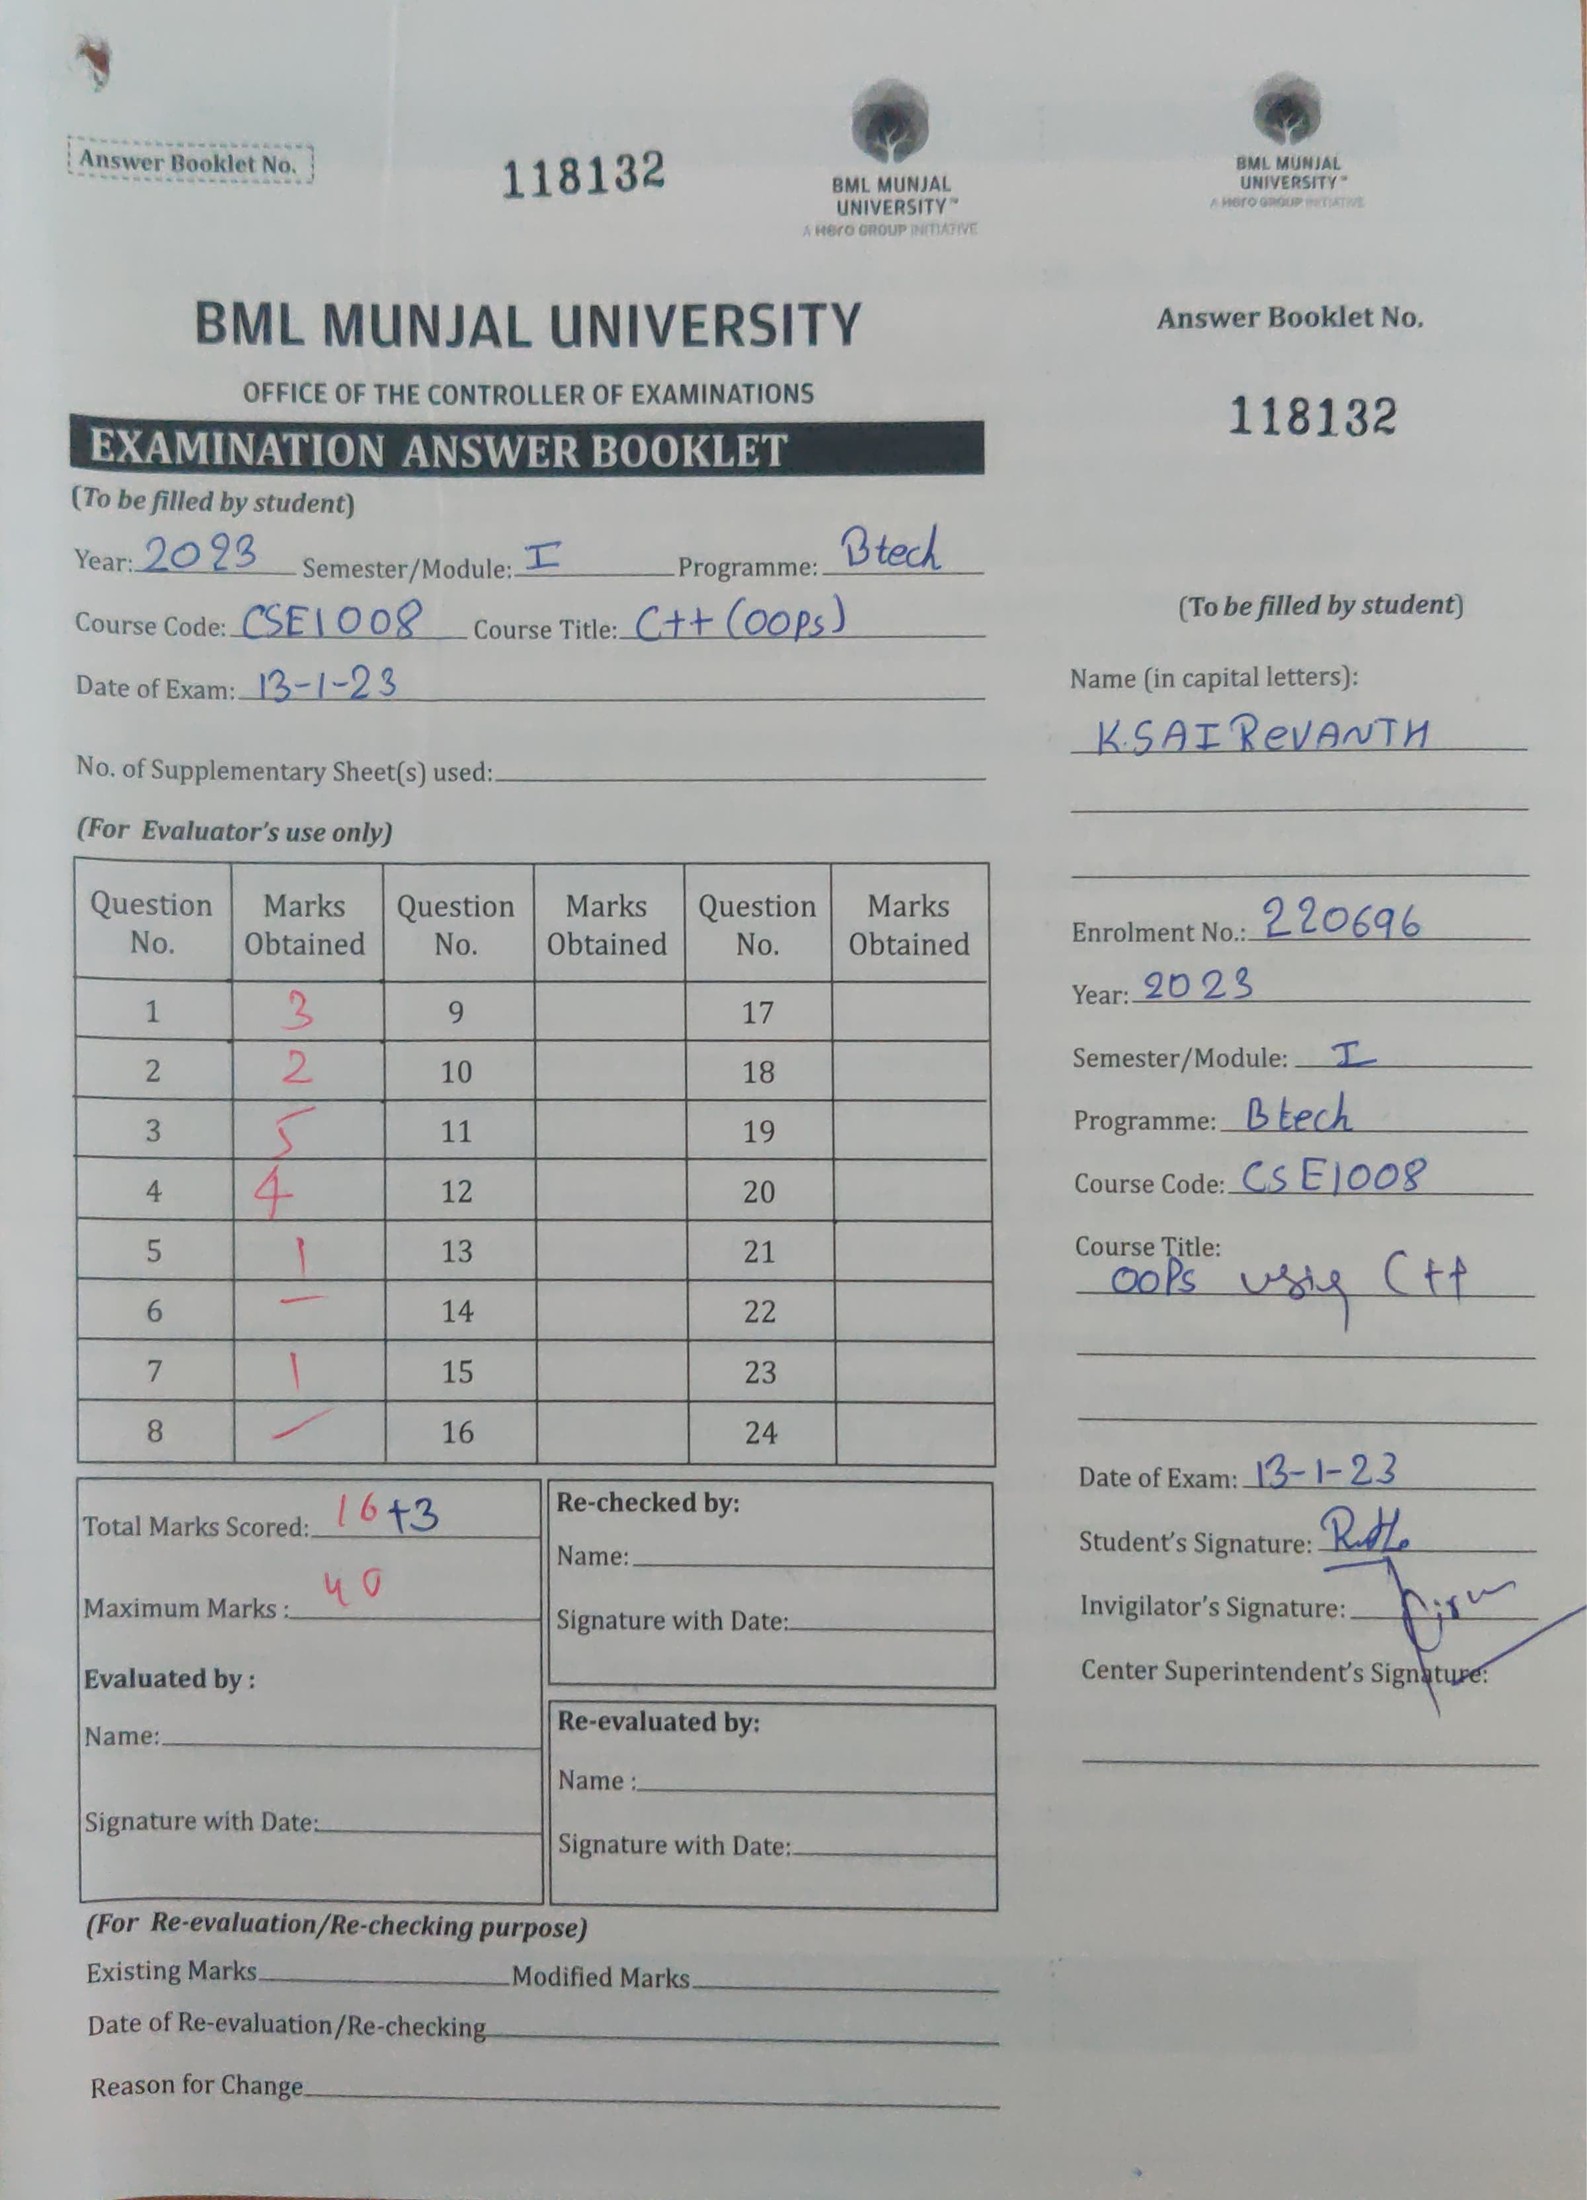 Answer Booklet No.
118132
BML MUNJAL
UNIVERSITY™
A Hero GROUP INITIATIVE
BML MUNJAL UNIVERSITY
OFFICE OF THE CONTROLLER OF EXAMINATIONS
EXAMINATION ANSWER BOOKLET
(To be filled by student)
Year: 2023 Semester/Module: I Programme: Btech
Course Code: CSE1008 Course Title: C++ (OOPs)
Date of Exam: 13-1-23
No. of Supplementary Sheet(s) used:
(For Evaluator's use only)
Question No. Marks Obtained Question No. Marks Obtained Question No. Marks Obtained
1 3 9 17
2 2 10 18
3 5 11 19
4 4 12 20
5 1 13 21
6 — 14 22
7 1 15 23
8 — 16 24
Total Marks Scored: 16+3
Maximum Marks : 40
Evaluated by :
Name:
Signature with Date:
Re-checked by:
Name:
Signature with Date:
Re-evaluated by:
Name :
Signature with Date:
(For Re-evaluation/Re-checking purpose)
Existing Marks Modified Marks
Date of Re-evaluation/Re-checking
Reason for Change
BML MUNJAL
UNIVERSITY™
A Hero GROUP INITIATIVE
Answer Booklet No.
118132
(To be filled by student)
Name (in capital letters):
K.SAI ReVANTH
Enrolment No.: 220696
Year: 2023
Semester/Module: I
Programme: Btech
Course Code: CSE1008
Course Title:
OOPs using C++
Date of Exam: 13-1-23
Student's Signature:
Invigilator's Signature:
Center Superintendent's Signature: